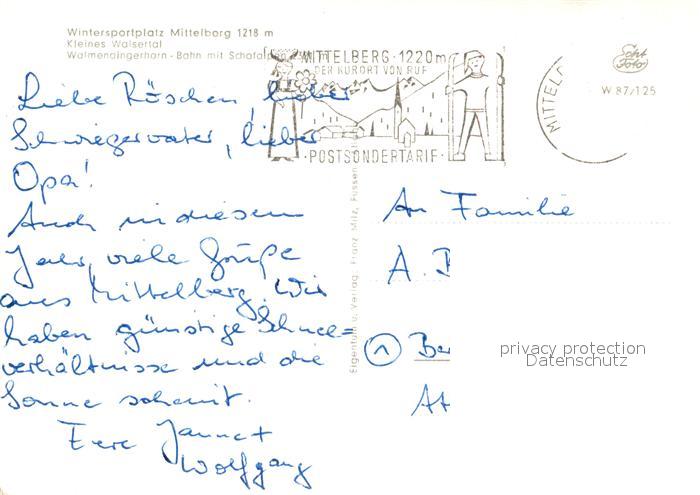 Wintersportplatz Mittelberg 1218 m
Kleines Walsertal
Walmendingerhorn-Bahn mit Schafalp
MITTELBERG · 1220 m
DER KURORT VON RUF
POSTSONDERTARIF
MITTEL
Echt Foto
W 87/125
Liebe Röschen, lieber
Schwiegervater, lieber
Opa!
Auch in diesem
Jahr viele Grüße
aus Mittelberg. Wir
haben günstige Schnee=
verhältnisse und die
Sonne scheint.
Eure Janne +
Wolfgang
Eigentum u. Verlag: Franz Milz, Füssen
An Familie
A.
1 Be
At
privacy protection
Datenschutz